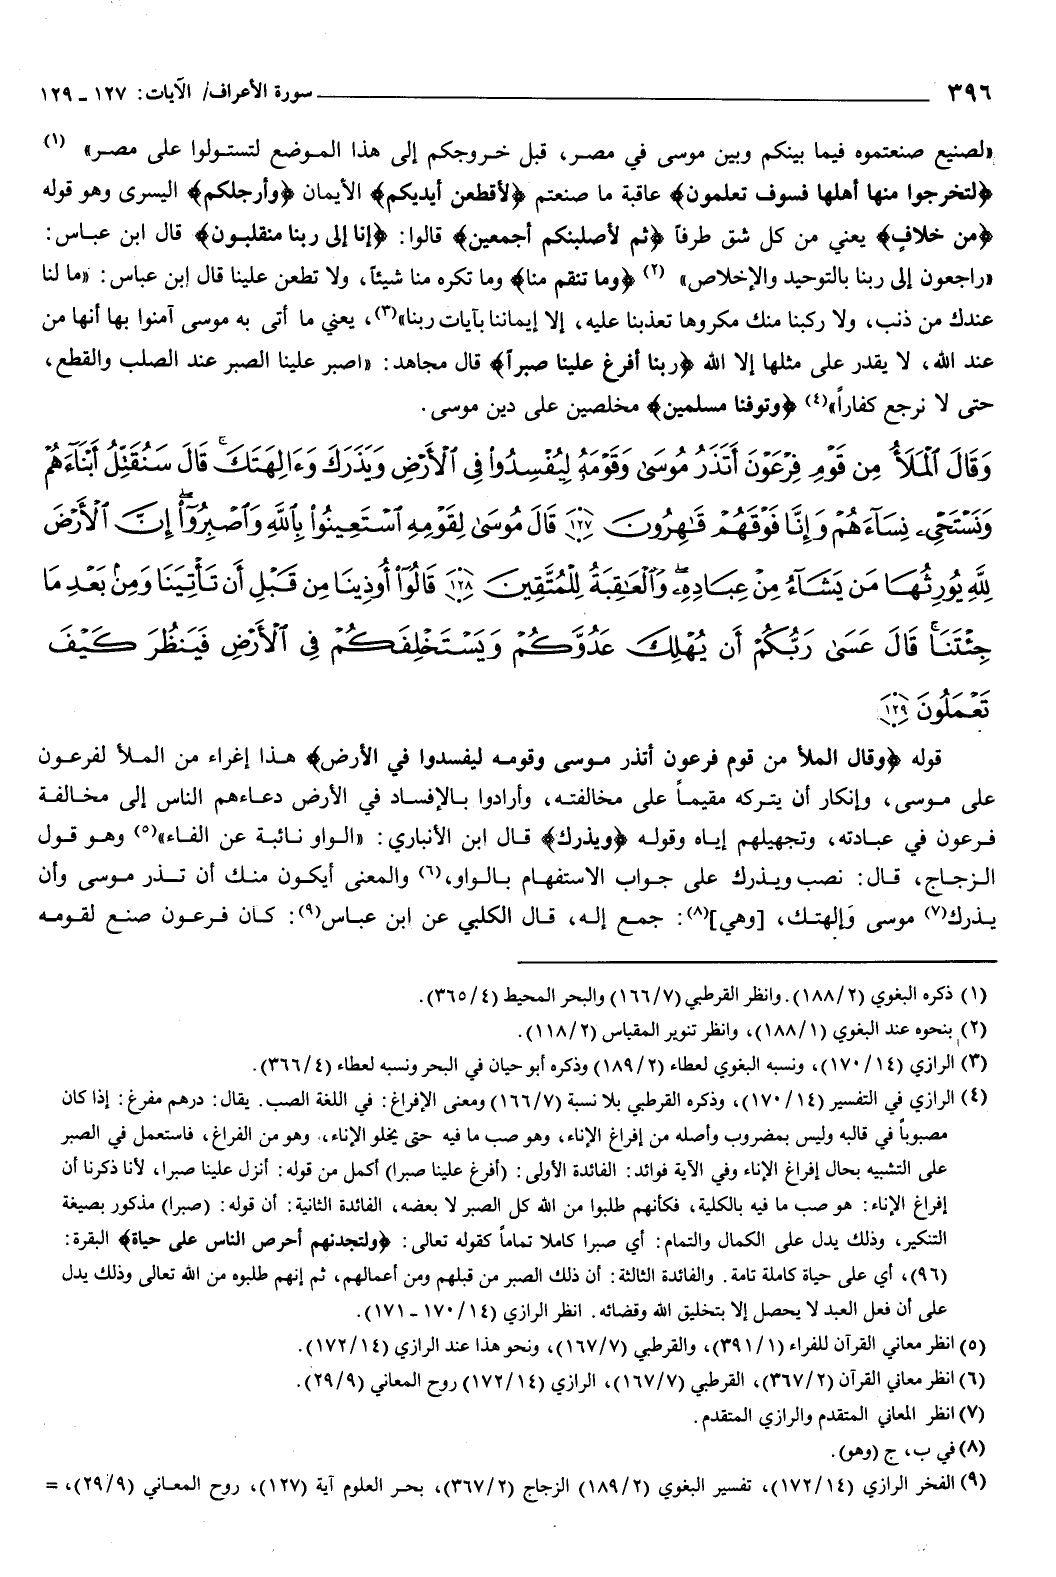 ٣٩٦ سورة الأعراف/ الآيات: ١٢٧ ـ ١٢٩
«لصنيع صنعتموه فيما بينكم وبين موسى في مصر، قبل خروجكم إلى هذا الموضع لتستولوا على مصر» (١)
﴿لتخرجوا منها أهلها فسوف تعلمون﴾ عاقبة ما صنعتم ﴿لأقطعن أيديكم﴾ الأيمان ﴿وأرجلكم﴾ اليسرى وهو قوله
﴿من خلافٍ﴾ يعني من كل شق طرفاً ﴿ثم لأصلبنكم أجمعين﴾ قالوا: ﴿إنا إلى ربنا منقلبون﴾ قال ابن عباس:
«راجعون إلى ربنا بالتوحيد والإخلاص» (٢) ﴿وما تنقم منا﴾ وما تكره منا شيئاً، ولا تطعن علينا قال إبن عباس: «ما لنا
عندك من ذنب، ولا ركبنا منك مكروها تعذبنا عليه، إلا إيماننا بآيات ربنا»(٣)، يعني ما أتى به موسى آمنوا بها أنها من
عند الله، لا يقدر على مثلها إلا الله ﴿ربنا أفرغ علينا صبراً﴾ قال مجاهد: «اصبر علينا الصبر عند الصلب والقطع،
حتى لا نرجع كفاراً»(٤) ﴿وتوفنا مسلمين﴾ مخلصين على دين موسى.
وَقَالَ ٱلْمَلَأُ مِن قَوْمِ فِرْعَوْنَ أَتَذَرُ مُوسَىٰ وَقَوْمَهُۥ لِيُفْسِدُوا۟ فِى ٱلْأَرْضِ وَيَذَرَكَ وَءَالِهَتَكَ ۚ قَالَ سَنُقَتِّلُ أَبْنَآءَهُمْ
وَنَسْتَحْىِۦ نِسَآءَهُمْ وَإِنَّا فَوْقَهُمْ قَٰهِرُونَ ١٢٧ قَالَ مُوسَىٰ لِقَوْمِهِ ٱسْتَعِينُوا۟ بِٱللَّهِ وَٱصْبِرُوٓا۟ ۖ إِنَّ ٱلْأَرْضَ
لِلَّهِ يُورِثُهَا مَن يَشَآءُ مِنْ عِبَادِهِۦ ۖ وَٱلْعَٰقِبَةُ لِلْمُتَّقِينَ ١٢٨ قَالُوٓا۟ أُوذِينَا مِن قَبْلِ أَن تَأْتِيَنَا وَمِنۢ بَعْدِ مَا
جِئْتَنَا ۚ قَالَ عَسَىٰ رَبُّكُمْ أَن يُهْلِكَ عَدُوَّكُمْ وَيَسْتَخْلِفَكُمْ فِى ٱلْأَرْضِ فَيَنظُرَ كَيْفَ
تَعْمَلُونَ ١٢٩
قوله ﴿وقال الملأ من قوم فرعون أتذر موسى وقومه ليفسدوا في الأرض﴾ هذا إغراء من الملأ لفرعون
على موسى، وإنكار أن يتركه مقيماً على مخالفته، وأرادوا بالإفساد في الأرض دعاءهم الناس إلى مخالفة
فرعون في عبادته، وتجهيلهم إياه وقوله ﴿ويذرك﴾ قال ابن الأنباري: «الواو نائبة عن الفاء»(٥) وهو قول
الزجاج، قال: نصب ويذرك على جواب الاستفهام بالواو،(٦) والمعنى أيكون منك أن تذر موسى وأن
يذرك(٧) موسى وَإلهتك، [وهي](٨): جمع إله، قال الكلبي عن ابن عباس(٩): كان فرعون صنع لقومه
(١) ذكره البغوي (١٨٨/٢). وانظر القرطبي (١٦٦/٧) والبحر المحيط (٣٦٥/٤).
(٢) بنحوه عند البغوي (١٨٨/١)، وانظر تنوير المقباس (١١٨/٢).
(٣) الرازي (١٧٠/١٤)، ونسبه البغوي لعطاء (١٨٩/٢) وذكره أبو حيان في البحر ونسبه لعطاء (٣٦٦/٤).
(٤) الرازي في التفسير (١٧٠/١٤)، وذكره القرطبي بلا نسبة (١٦٦/٧) ومعنى الإفراغ: في اللغة الصب. يقال: درهم مفرغ: إذا كان
مصبوباً في قالبه وليس بمضروب وأصله من إفراغ الإناء، وهو صب ما فيه حتى يخلو الإناء، وهو من الفراغ، فاستعمل في الصبر
على التشبيه بحال إفراغ الإناء وفي الآية فوائد: الفائدة الأولى: (أفرغ علينا صبرا) أكمل من قوله: أنزل علينا صبرا، لأنا ذكرنا أن
إفراغ الإناء: هو صب ما فيه بالكلية، فكأنهم طلبوا من الله كل الصبر لا بعضه، الفائدة الثانية: أن قوله: (صبرا) مذكور بصيغة
التنكير، وذلك يدل على الكمال والتمام: أي صبرا كاملا تماماً كقوله تعالى: ﴿ولتجدنهم أحرص الناس على حياة﴾ البقرة:
(٩٦)، أي على حياة كاملة تامة. والفائدة الثالثة: أن ذلك الصبر من قبلهم ومن أعمالهم، ثم إنهم طلبوه من الله تعالى وذلك يدل
على أن فعل العبد لا يحصل إلا بتخليق الله وقضائه. انظر الرازي (١٧٠/١٤ ـ ١٧١).
(٥) انظر معاني القرآن للفراء (٣٩١/١)، والقرطبي (١٦٧/٧)، ونحو هذا عند الرازي (١٧٢/١٤).
(٦) انظر معاني القرآن (٣٦٧/٢)، القرطبي (١٦٧/٧)، الرازي (١٧٢/١٤) روح المعاني (٢٩/٩).
(٧) انظر المعاني المتقدم والرازي المتقدم.
(٨) في ب، ج (وهو).
(٩) الفخر الرازي (١٧٢/١٤)، تفسير البغوي (١٨٩/٢) الزجاج (٣٦٧/٢)، بحر العلوم آية (١٢٧)، روح المعاني (٢٩/٩)، =